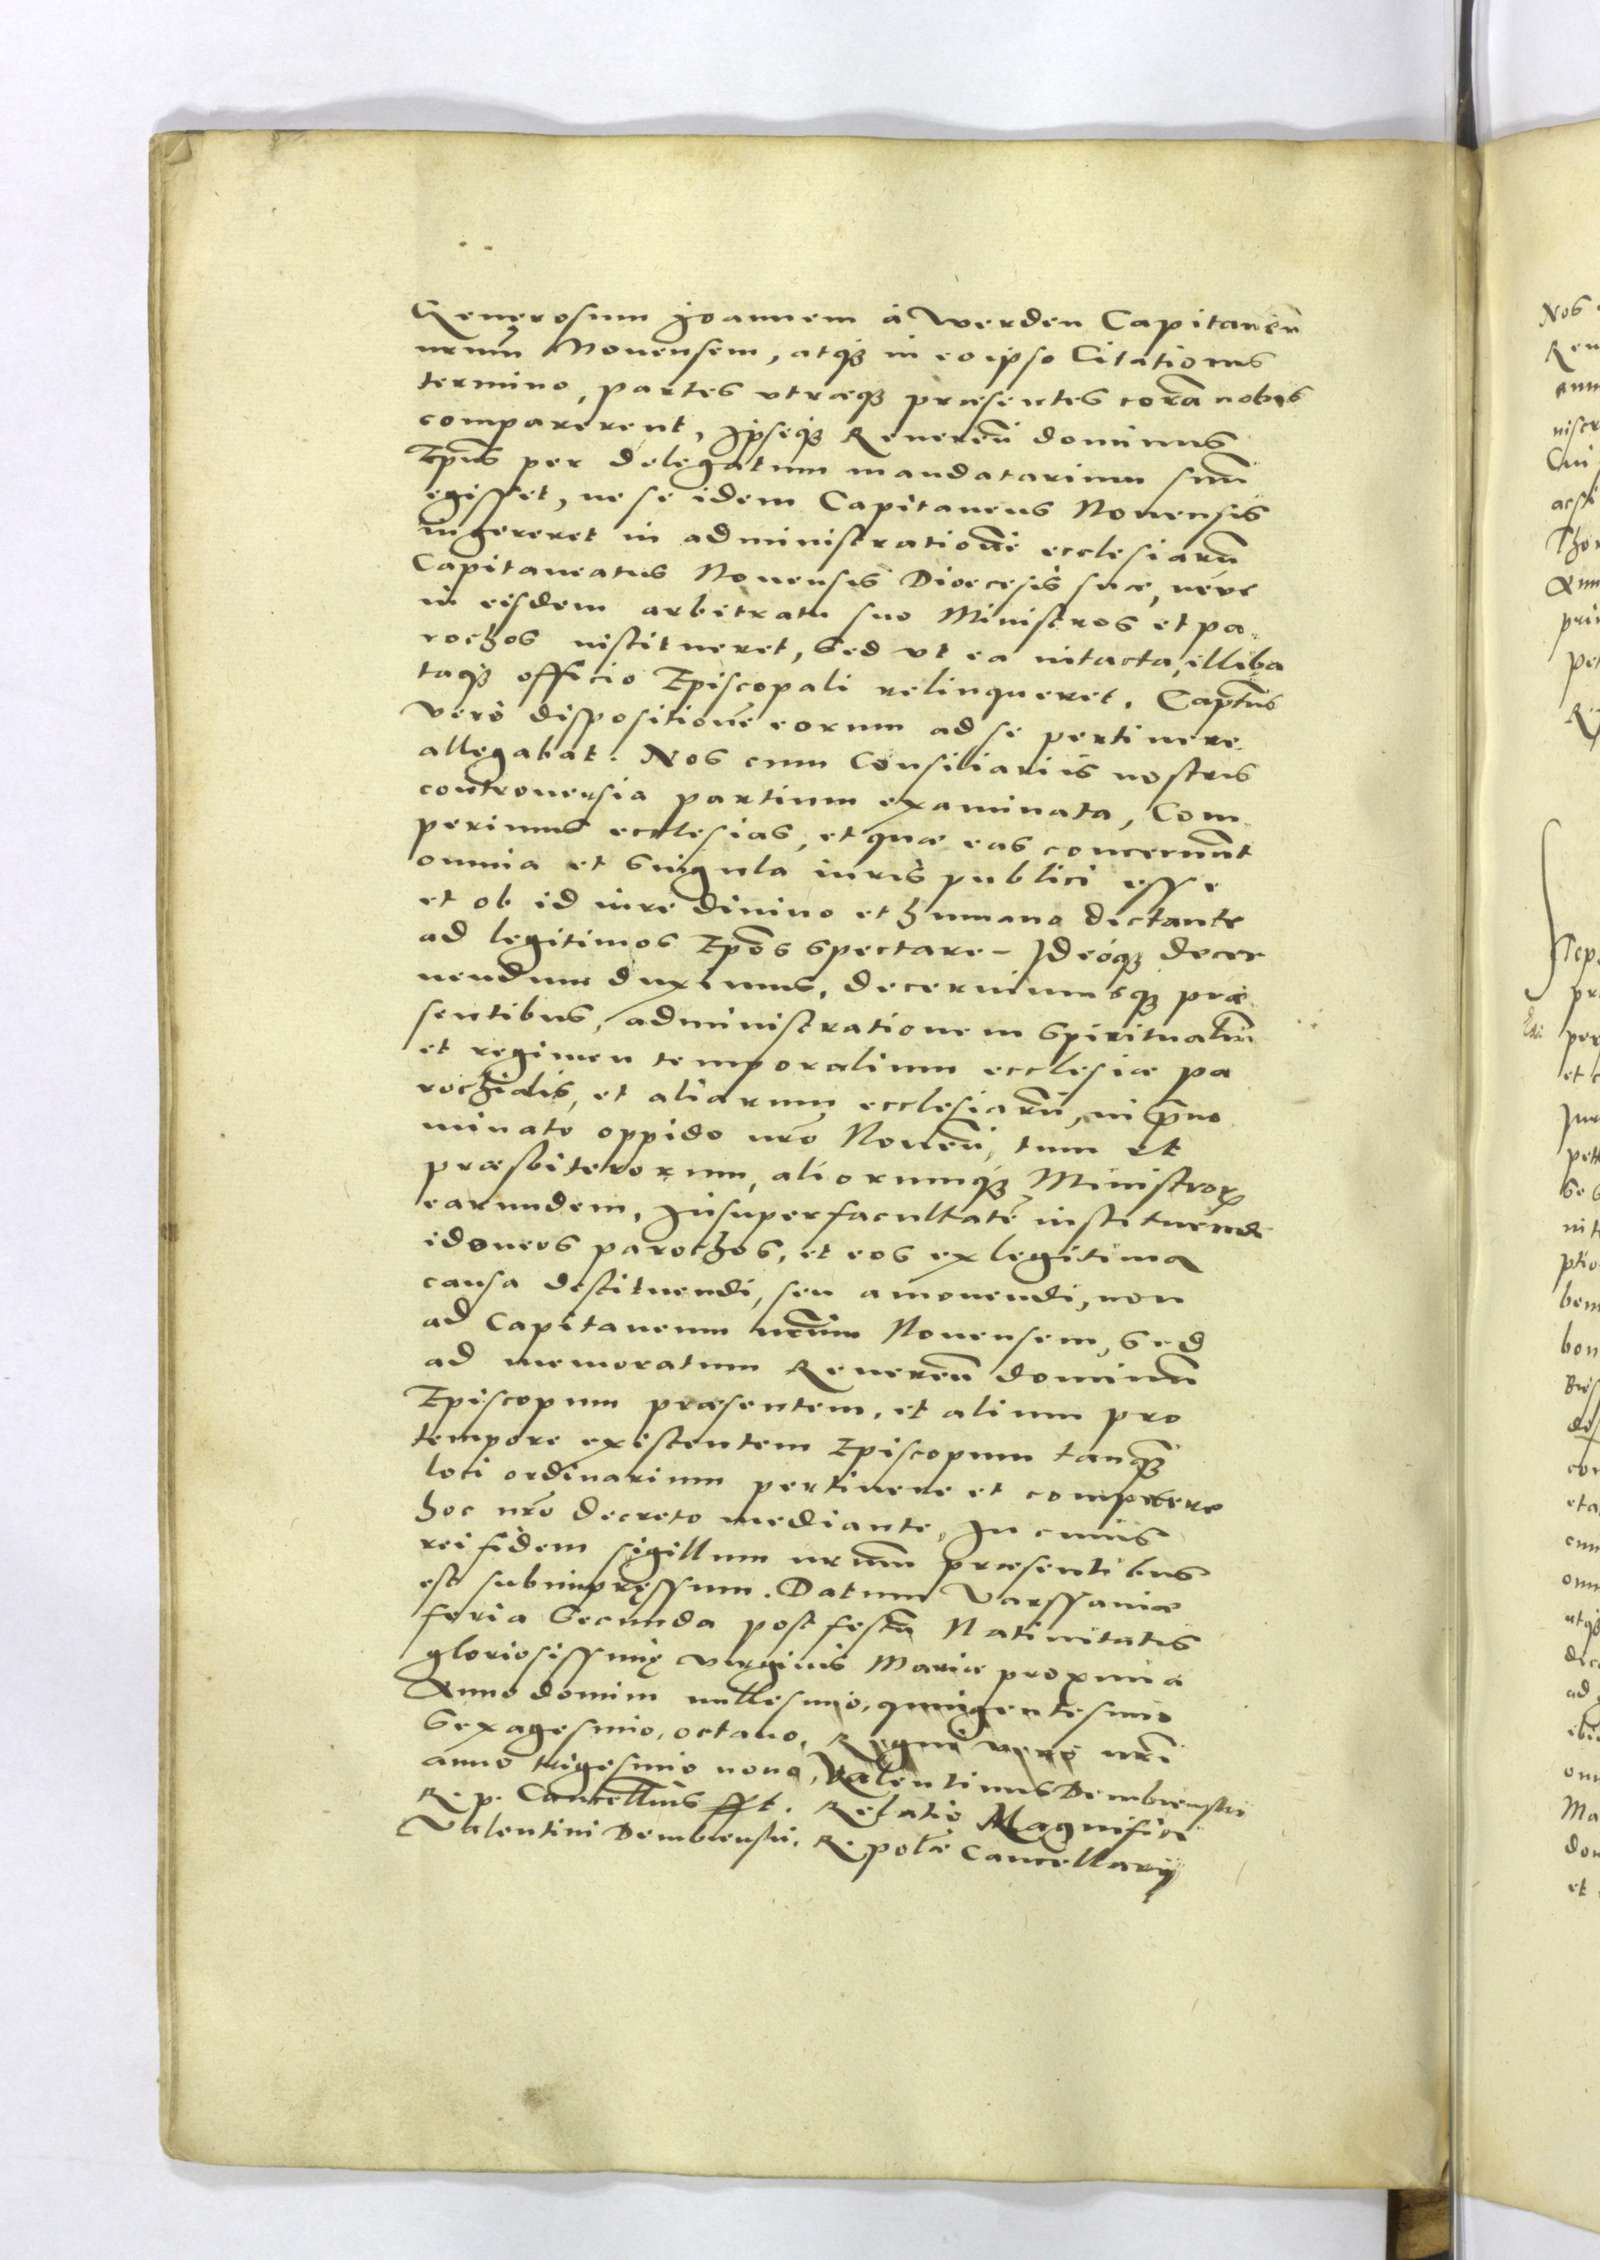 Generosum Joannem à Werden Capitaneũ
nr̃um Nouensem, atq̃ in eo ipso Citationis
termino, partes vtræq̃ præsentes corã nobis
comparerent, Ipseq̃ Reuereñ dominus
Ep̃us per delegatum mandatarium suũ
egisset, ne se idem Capitaneus Nouensis
ingereret in administrationẽ ecclesiarũ
Capitaneatus Nouensis Dioecesis suæ, nèue
in eisdem arbitratu suo Ministros et pa-
rochos institueret, Sed vt ea intacta, illiba
taq̃ officio Episcopali relinqueret. Capt̃us
verò dispositionẽ eorum ad se pertinere
allegabat. Nos cum Consiliariis nostris
controuersia partium examinata, Com-
perimus ecclesias, et quæ eas concernũt
omnia et singula iuris publici esse
et ob id iure diuino et humano dictante
ad legitimos Ep̃os spectare - Ideóq̃ decer
nendum duximus, decernimusq̃ præ
sentibus, administrationem Spiritualiũ
et regimen temporalium ecclesiæ pa
rochialis, et aliarum ecclesiarũ, in p̃no
minato oppido nr̃o Nouen̄, tum et
præsbiterorum, aliorumq̃ Ministroꝝ
earundem, Insuper facultatẽ instituendi
idoneos parochos, et eos ex legitima
causa destituendi, seu amouendi, non
ad Capitaneum nr̃um Nouensem, Sed
ad memoratum Reuereñ dominũ
Episcopum præsentem, et alium pro
tempore existentem Episcopum tanq̃
loci ordinarium pertinere et competere
hoc nr̃o decreto mediante, In cuius
rei fidem sigillum nr̃um præsentibus
est subimpressum. Datum Varssauiæ
feria Secunda post festũ Natiuitatis
gloriosissimę virginis Mariæ proxima
Anno domini millesimo, quingentesimo
Sexagesimo, octauo, Regni verò nr̃i
anno trigesimo nono, Valentinus Dembienski
R. p. Cancellrius sst. Relatio Magnifici
Valentini Dembienski, R. pol̃æ Cancellarij